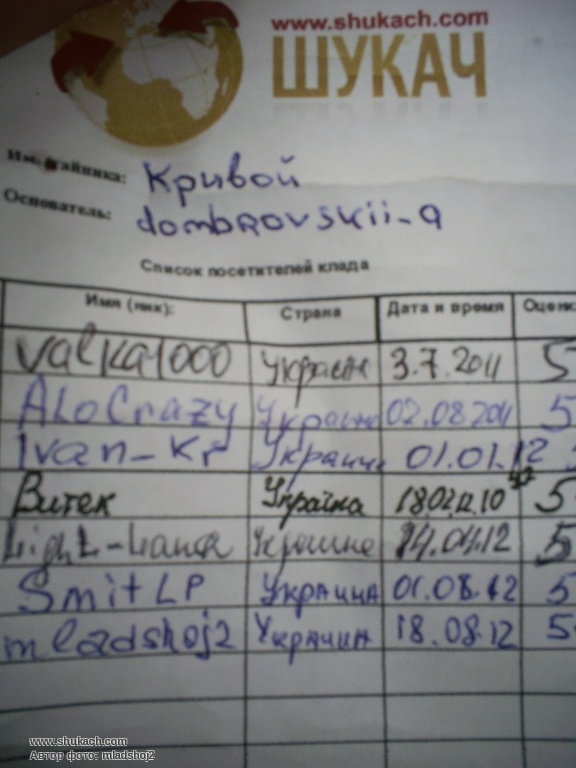 www.shukach.com
ШУКАЧ
Имя тайника: Кривой
Основатель: dombrovskii-a
Список посетителей клада
Имя (ник): Страна Дата и время
valka1000 Украина 3.7.2011 5
AloCrazy Украина 02.08.2011 5
Ivan-kr Украине 01.01.12
Витек Україна 5
Украине 14.04.12 5
SmitLP Украина 01.08.12 5
mladshoj2 Украина 18.08.12 5
www.shukach.com
Автор фото: mladshoj2